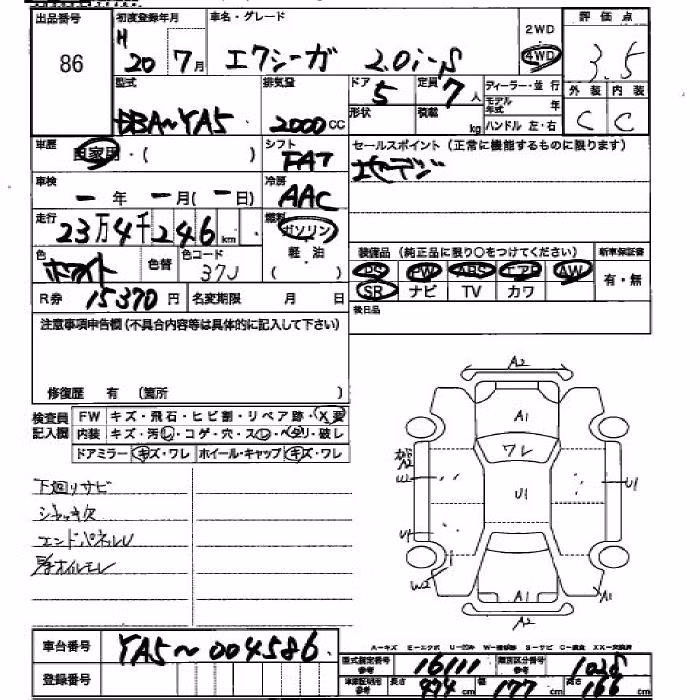 出品番号 初度登録年月 車名・グレード 2WD 評価点
86 H 20 7月 エクシーガ 2.0i-S 4WD 3.5
型式 排気量 ドア 5 定員 7人 ディーラー・並行 外装 内装
DBA~YA5 2000cc 形状 積載 kg モデル年式 年 C C
ハンドル 左・右
車歴 自家用・( ) シフト FAT セールスポイント(正常に機能するものに限ります)
車検 ー年ー月(ー日) 冷房 AAC
走行 23万4千246km 燃料 ガソリン
軽・油
色 ホワイト 色替 色コード 37J 装備品(純正品に限り○をつけてください) 新車保証書
PS PW ABS エアB AW 有・無
R券 15370円 名変期限 月 日 SR ナビ TV カワ
注意事項申告欄(不具合内容等は具体的に記入して下さい) 後日品
修復歴 有 (箇所 )
検査員記入欄 FW キズ・飛石・ヒビ割・リペア跡・X要
内装 キズ・汚レ・コゲ・穴・スレ・ヘタリ・破レ
ドアミラー キズ・ワレ ホイール・キャップ キズ・ワレ
下廻りサビ
ジャッキ欠
エンドパネルU
A2
A1
ワレ
A2
W2 U1 U1
U1
W2 A1 A1
A2
車台番号 YA5~004586
A-キズ E-エクボ U-凹み W-補修跡 S-サビ C-腐食 XX-交換済
登録番号 型式指定番号参考 16111 類別区分番号参考 1028
車庫証明用参考 長さ 474cm 幅 177cm 高さ 166cm